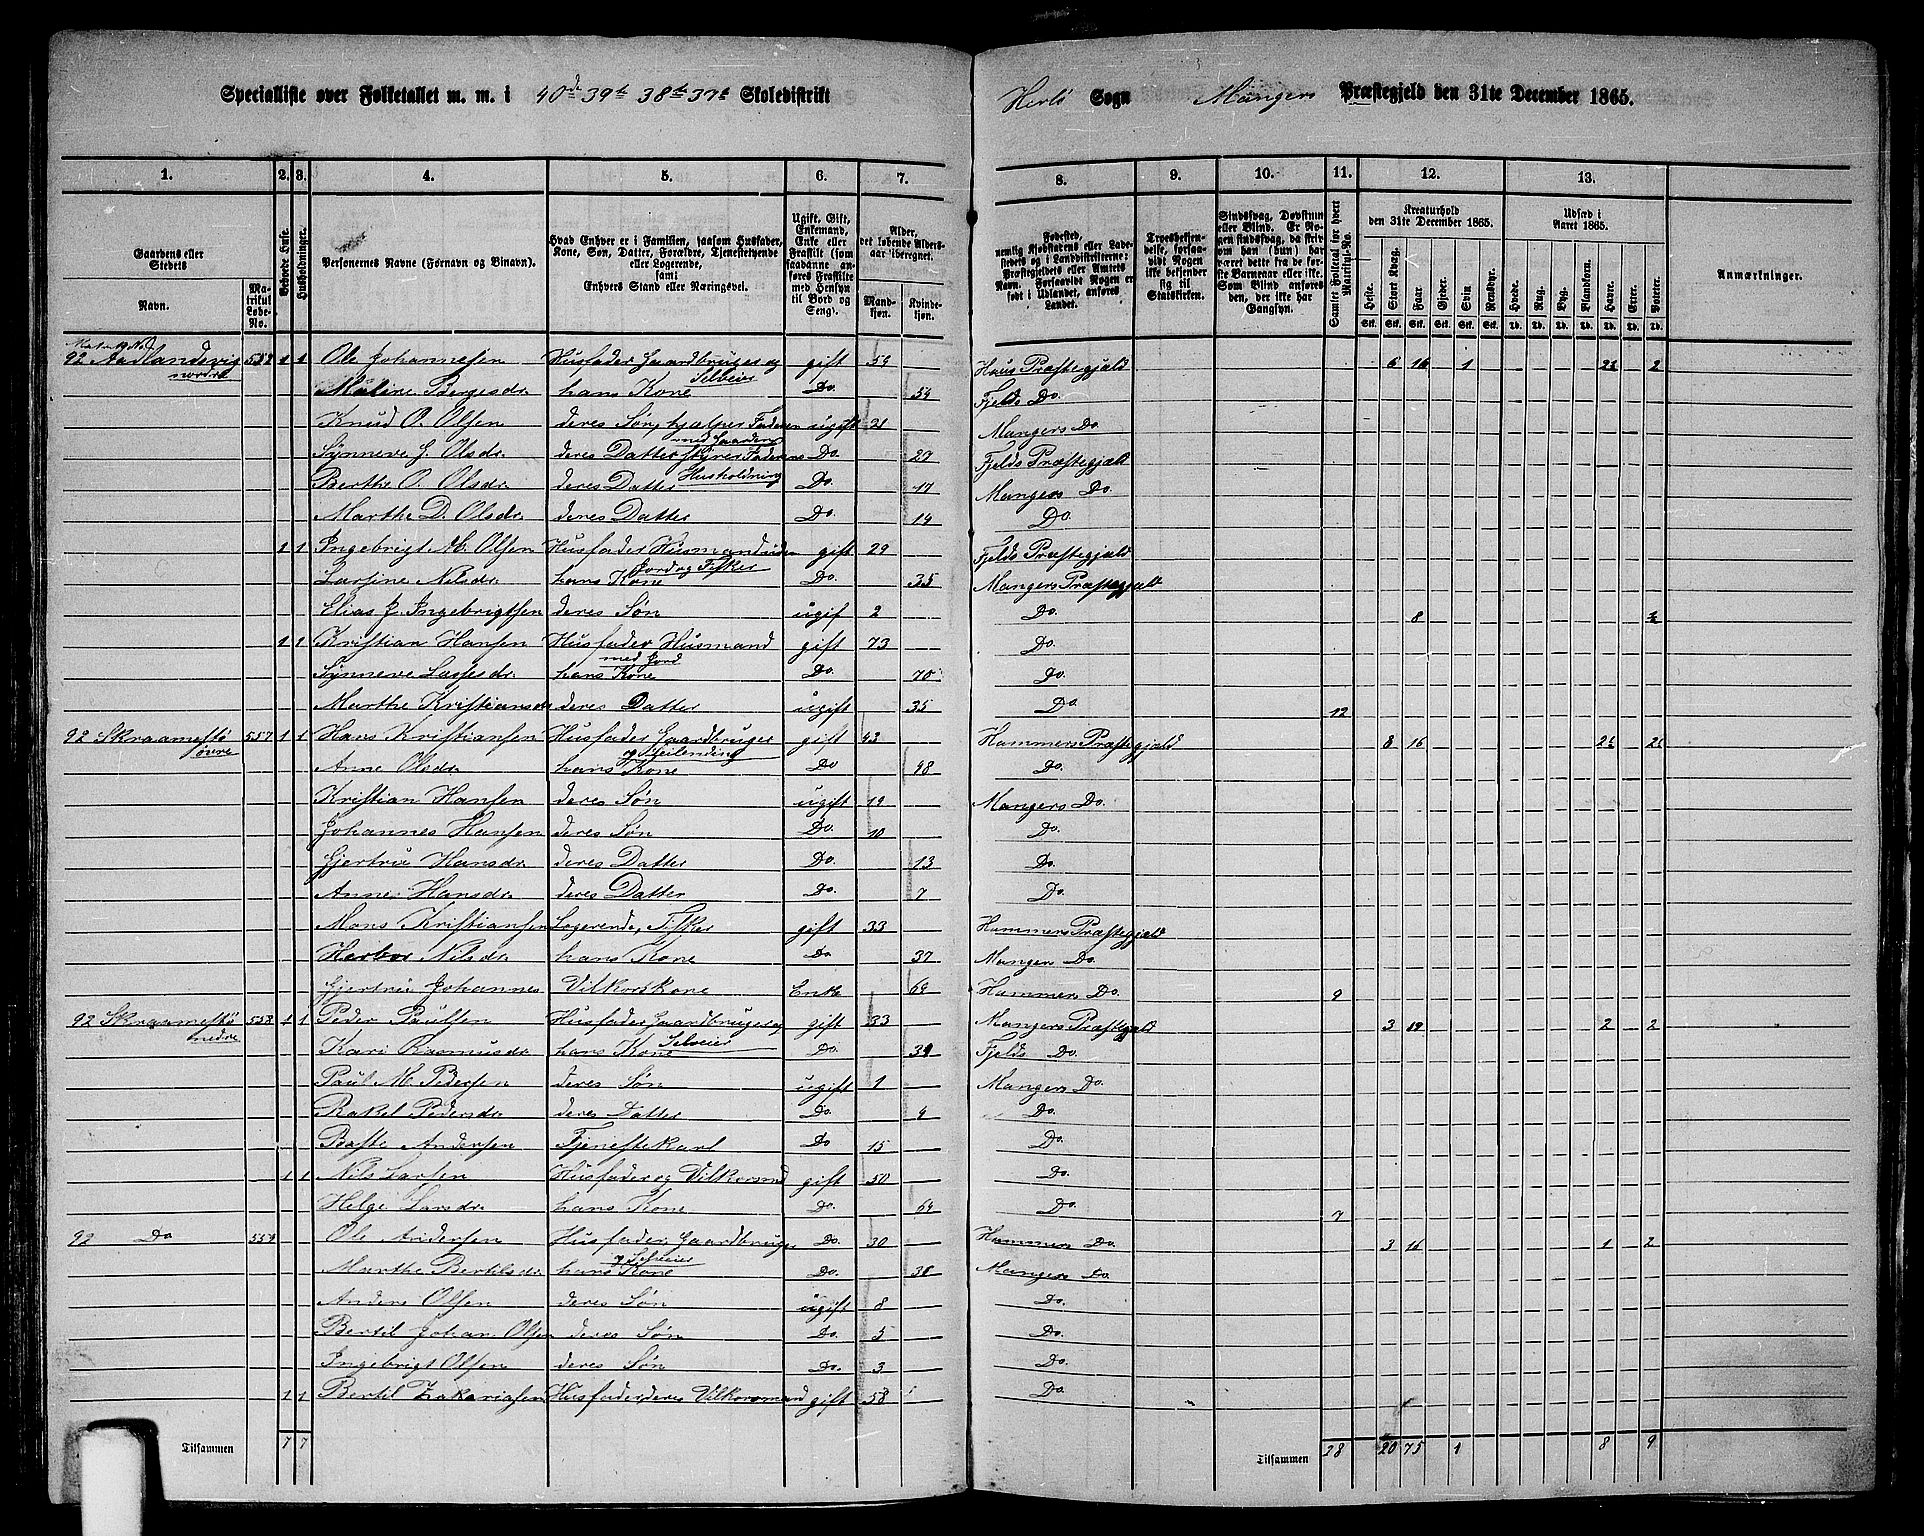 Specialliste over Folketallet m. m. i 40de 39te 38te 37te Skoledistrikt
Herlø Sogn Mangers Præstegjeld den 31te December 1865.
1. 2. 3. 4. 5. 6. 7. 8. 9. 10. 11. 12. 13.
Gaardens eller Stedets
Navn.
Matrikul Løbe-No.
Beboede Huse.
Husholdninger.
Personernes Navne (Fornavn og Binavn).
Hvad Enhver er i Familien, saasom Husfader, Kone, Søn, Datter, Forældre, Tjenestetyende eller Logerende, samt Enhvers Stand eller Næringsvei.
Ugift, Gift, Enkemand, Enke eller Fraskilt (som saadanne anføres Fraskilte med Hensyn til Bord og Seng).
Alder, det løbende Aldersaar iberegnet.
Mandkjøn. Kvindekjøn.
Fødested, nemlig Kjøbstadens eller Ladestedets og i Landdistrikterne: Præstegjeldets eller Amtets Navn. Forsaavidt Nogen er født i Udlandet, anføres Landet.
Troesbekjendelse, forsaavidt Nogen ikke bekjender sig til Statskirken.
Sindssvag, Døvstum eller Blind. Er Nogen sindssvag, da skrives om han (hun) har været dette fra de første Barneaar eller ikke. Som Blind anføres den, der ikke har Gangsyn.
Samlet Folketal for hvert Matricul-No.
Kreaturhold den 31te December 1865.
Heste. Stort Kvæg. Faar. Gjeder. Sviin. Rensdyr.
Udsæd i Aaret 1865.
Hvede. Rug. Byg. Blandkorn. Havre. Erter. Poteter.
Anmærkninger.
92 Aadlandsvig nordre 552 1 1 Ole Johannessen Husfader Gaardbruger og Selveier gift 54 Haus Præstegjæld 6 16 1 2½ 2
Maline Bergesdr. hans Kone Do. 54 Fjelds Do.
Knud O. Olsen deres Søn, hjælper Faderen med Gaarden ugift 21 Mangers Do
Synneve J. Olsdr. deres Datter styrer Faderens Husholdning Do. 27 Fjelds Præstegjæld
Berthe O. Olsdr. deres Datter Do. 17 Mangers Do.
Marthe D. Olsdr. deres Datter Do. 14 Do.
1 1 Ingebrigt M. Olsen Husfader Husmand uden Jord og Fisker gift 29 Fjelds Præstegjæld
Larsine Nilsdr. hans Kone Do. 35 Mangers Præstegjæld
Elias J. Ingebrigtsen deres Søn ugif 2 Do. 8
1 1 Kristian Hansen Husfader Husmand med Jord gift 73 Do.
Synneve Lassesdr. hans Kone Do. 70 Do.
Marthe Kristiansdr deres Datter ugift 35 Do. 12
92 Skraamestø øvre 557 1 1 Hans Kristiansen Husfader Gaardbruger og Leilending gift 43 Hammers Præstegjæld 8 16 2½
Anne Olsdr. hans Kone Do 48 Do.
Kristian Hansen deres Søn ugift 19 Mangers Do.
Johannes Hansen deres Søn Do. 10 Do.
Gjertrue Hansdr. deres Datter Do. 13 Do.
Anne Hansdr. deres Datter Do. 7 Do.
Mons Kristiansen Logerende, Fisker gift 33 Hammers Præstegjæld
Herbor Nilsdr. hans Kone Do 37 Manger Do.
Gjertrue Johannes Vilkorskone Enke 69 Hammer Do. 9
92 Skraamestø nedre 558 1 1 Peder Paulsen Husfader, Gaardbruger og Selveier gift 33 Mangers Præstegjæld 3 19 2 2
Kari Rasmusdr. hans Kone Do. 39 Fjelds Do.
Paul M. Pedersen deres Søn ugift 1 Mangers Do.
Rakel Pedersdr. deres Datter Do. 9 Do.
Andersen Tjenestekarl Do 15 Do.
1 1 Nils Larsen Husfader og Vilkorsmd gift 50 Do.
Helge Larsdr. hans Kone Do. 64 Do. 7
92 Do 559 Ole Andersen Husfader, Gaardbruger og Selveier Do. 30 Hammers Do. 3 16 1 2
Marthe Bertilsdr. hans Kone Do. 31 Mangers Do.
Anders Olsen deres Søn ugift 8 Do.
Bertil Johan Olsen deres Søn Do. 5 Do.
Ingebrigt Olsen deres Søn Do. 3 Do.
1 1 Bertil Zakariasen Husfader, deres Vilkorsmand gift 58 Do.
Tilsammen 7 7
Tilsammen 28 20 75 1 8 9